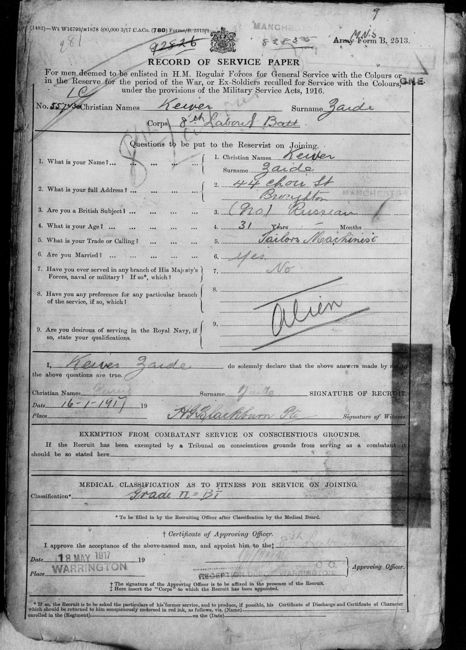 (1482)—Wt W16796/M1878 800,000 3/17 C.&Co. (780) Forms/B. 2513/
9
M.N.S.
92826
MANCHESTER
Army Form B. 2513.
RECORD OF SERVICE PAPER
For men deemed to be enlisted in H.M. Regular Forces for General Service with the Colours or
in the Reserve for the period of the War, or Ex-Soldiers recalled for Service with the Colours,
under the provisions of the Military Service Acts, 1916.
ONE
No. Christian Names Keiver Surname Zaide
Corps 8th Labour Batt
Questions to be put to the Reservist on Joining.
1. What is your Name? ... 1. Christian Names Keiver
Surname Zaide
2. What is your full Address? ... 2. 44 St
Broughton
MANCHESTER
3. Are you a British Subject? ... 3. (No) Russian
4. What is your Age? ... 4. 31 Years Months
5. What is your Trade or Calling? 5. Tailors Machinist
6. Are you Married? ... 6. Yes
7. Have you ever served in any branch of His Majesty's
Forces, naval or military? If so*, which? 7. No
8. Have you any preference for any particular branch
of the service, if so, which? 8.
Alien
9. Are you desirous of serving in the Royal Navy, if
so, state your qualifications. 9.
I, Keiver Zaide do solemnly declare that the above answers made by me to
the above questions are true.
Christian Names Surname Zaide SIGNATURE OF RECRUIT
Date 16-1-1917 19
Place Blackburn Signature of Witness
EXEMPTION FROM COMBATANT SERVICE ON CONSCIENTIOUS GROUNDS.
If the Recruit has been exempted by a Tribunal on conscientious grounds from serving as a combatant it
should be so stated here
MEDICAL CLASSIFICATION AS TO FITNESS FOR SERVICE ON JOINING.
Classification* Grade II
* To be filled in by the Recruiting Officer after Classification by the Medical Board.
† Certificate of Approving Officer.
I approve the acceptance of the above-named man, and appoint him to the‡
Date 18 MAY 1917 19
Place WARRINGTON
WARRINGTON
Approving Officer.
† The signature of the Approving Officer is to be affixed in the presence of the Recruit.
‡ Here insert the "Corps" to which the Recruit has been appointed.
* If so, the Recruit is to be asked the particulars of his former service, and to produce, if possible, his Certificate of Discharge and Certificate of Character
which should be returned to him conspicuously endorsed in red ink, as follows, viz. (Name)
enlisted in the (Regiment) on the (Date)